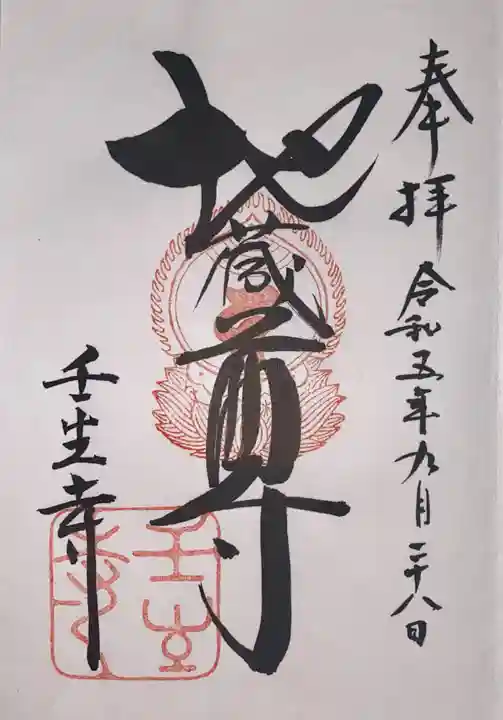 奉拝 令和五年九月二十八日
地蔵尊
壬生寺